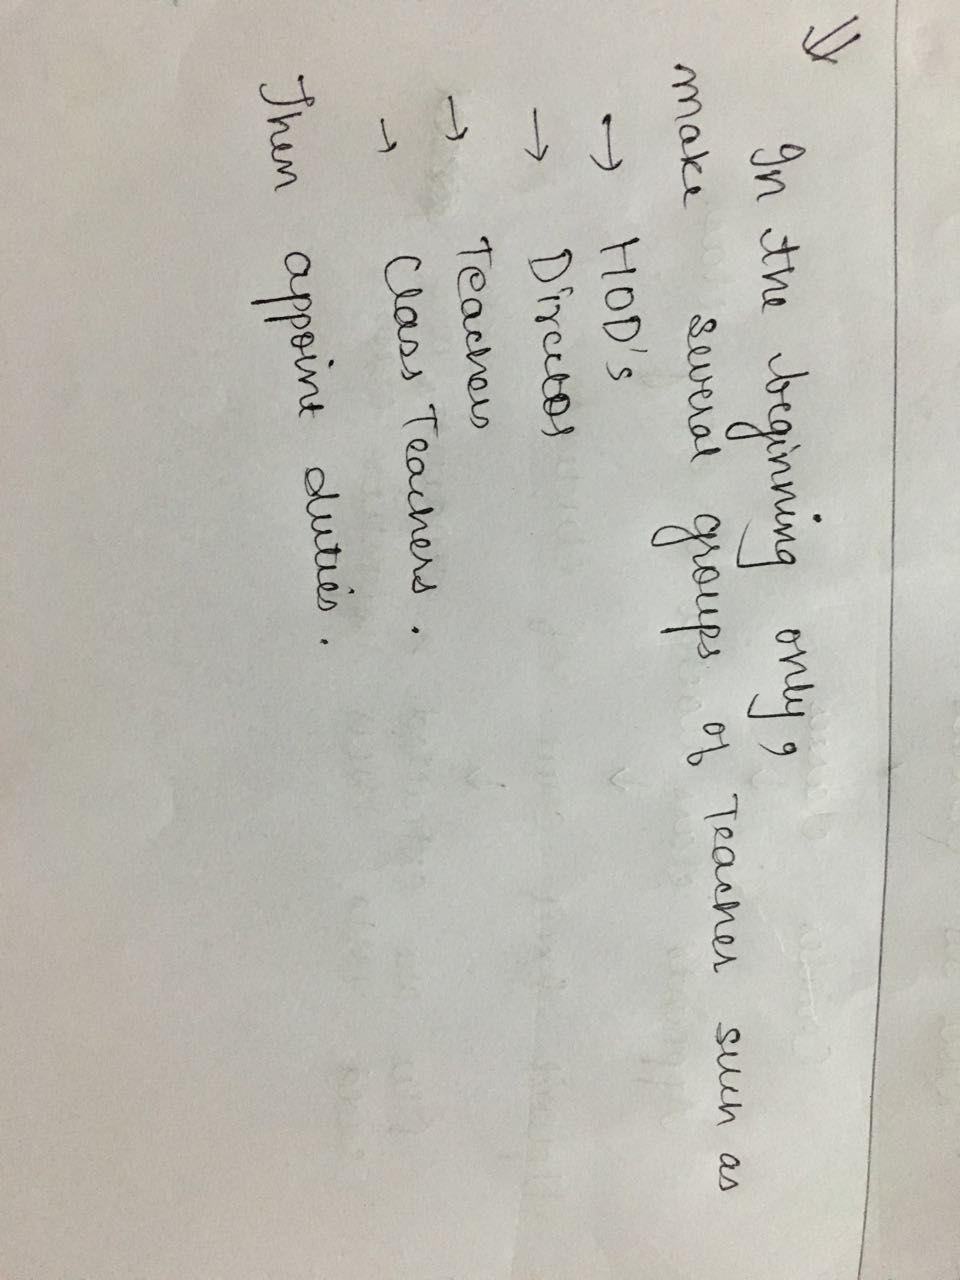 ⇒
In the beginning only,
make several groups of Teacher such as
→ HOD's
→ Director
→ Teachers
→ Class Teachers.
Then appoint duties.